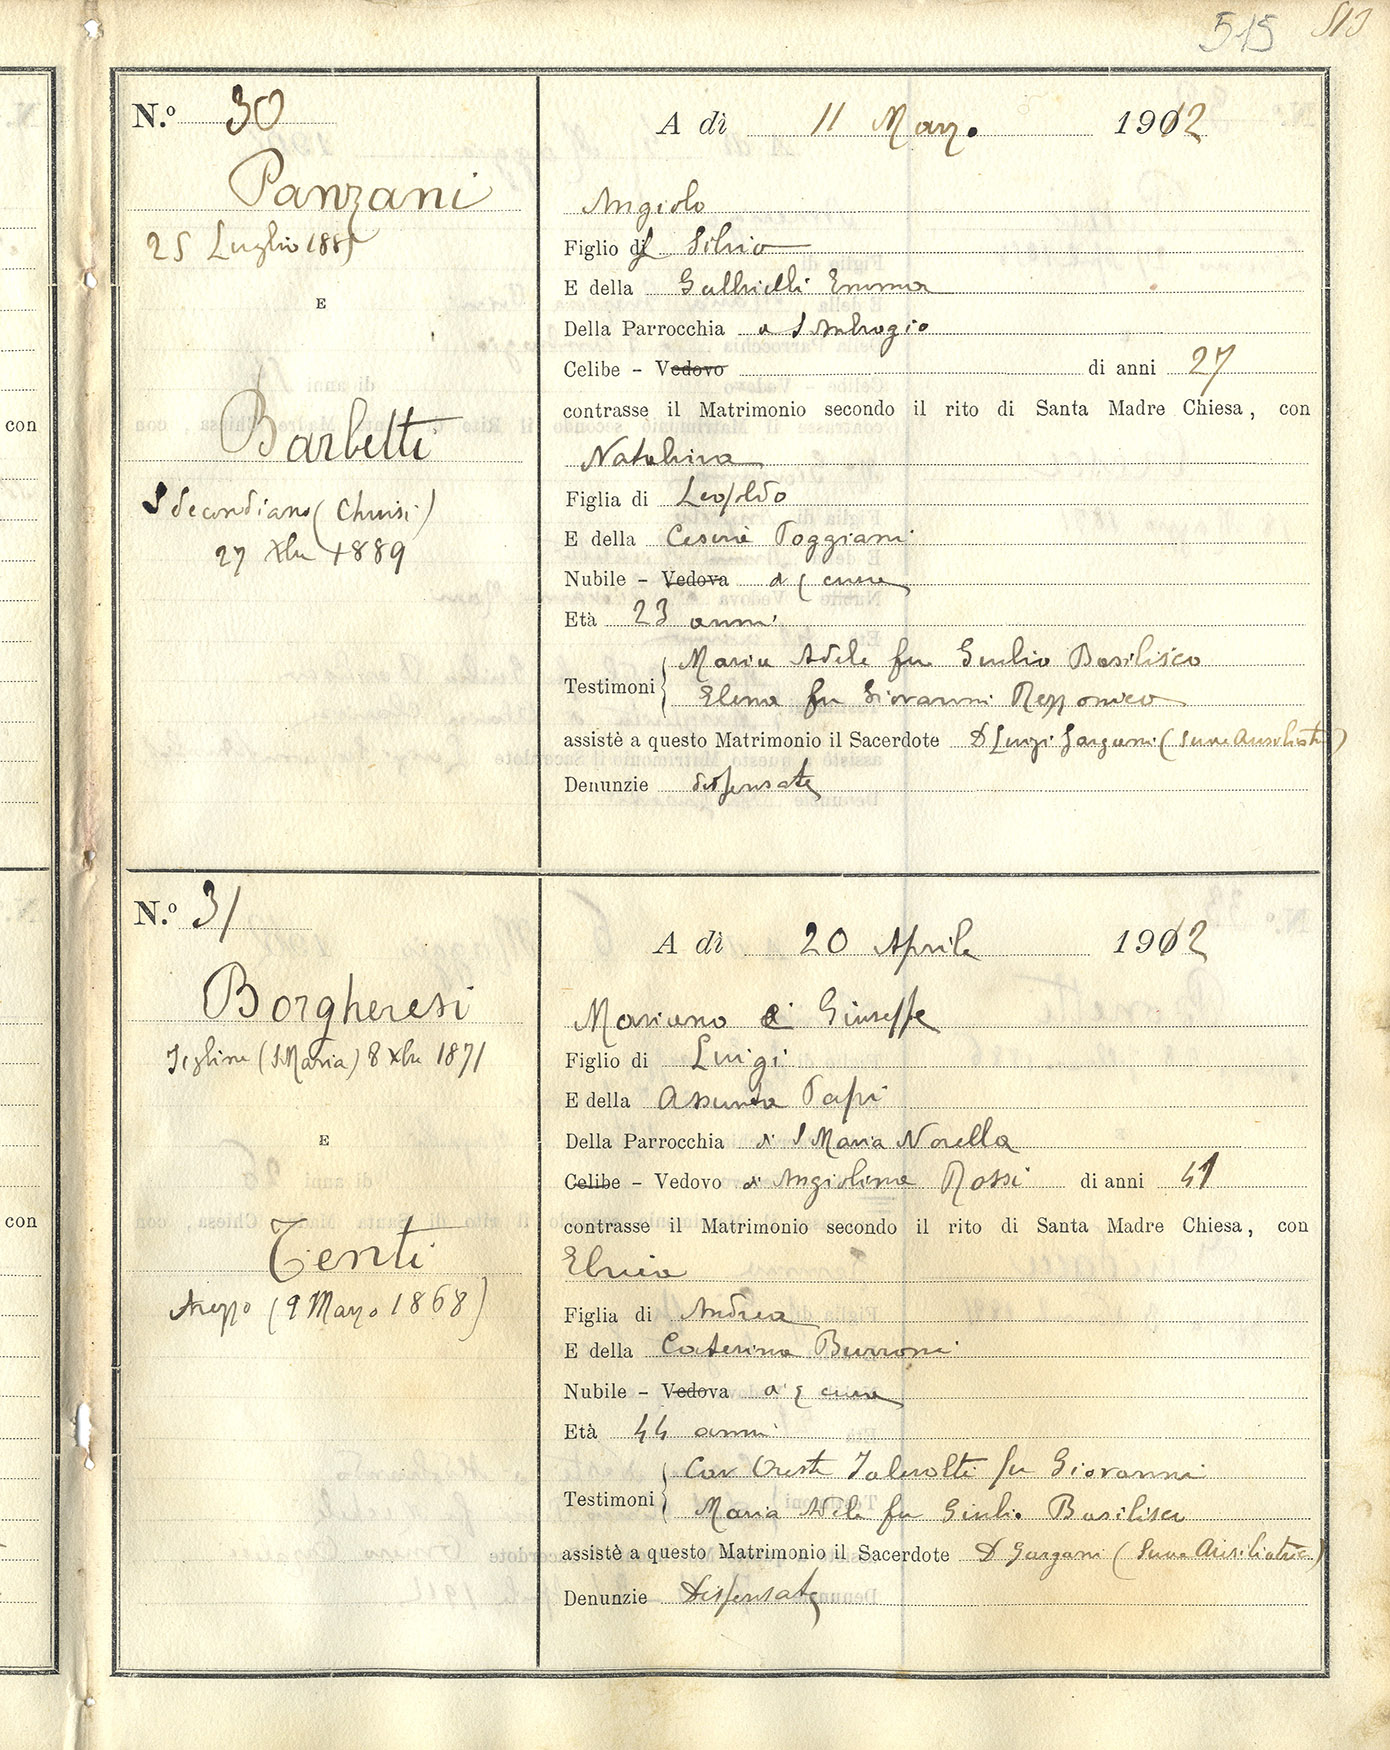 515 513
N.º 30
Panzani
25 Luglio 1885
E
Barbetti
S Secondiano (Chiusi)
27 Xbre 1889
A dì 11 Marzo 1912
Angiolo
Figlio di Silvio
E della Gabbrielli Emma
Della Parrocchia a S Ambrogio
Celibe - Vedovo di anni 27
contrasse il Matrimonio secondo il rito di Santa Madre Chiesa, con
Natalina
Figlia di Leopoldo
E della Cesira Poggiani
Nubile - Vedova di q cura
Età 23 anni
Testimoni Maria Adele fu Giulio Basilisco
Elena fu Giovanni Rezzonico
assistè a questo Matrimonio il Sacerdote D Luigi Gargani (Suore Ausiliatrici)
Denunzie dispensate
con
N.º 31
Borgheresi
Figline (S Maria) 8 Xbre 1871
E
Tenti
Arezzo (9 Marzo 1868)
A dì 20 Aprile 1912
Mariano Giuseppe
Figlio di Luigi
E della Assunta Papi
Della Parrocchia di S Maria Novella
Celibe - Vedovo di Angiolina Rossi di anni 41
contrasse il Matrimonio secondo il rito di Santa Madre Chiesa, con
Elvira
Figlia di Andrea
E della Caterina Burroni
Nubile - Vedova di q cura
Età 44 anni
Testimoni Cav Oreste fu Giovanni
Maria Adele fu Giulio Basilisco
assistè a questo Matrimonio il Sacerdote D Gargani (Suore Ausiliatrici)
Denunzie Dispensate
con